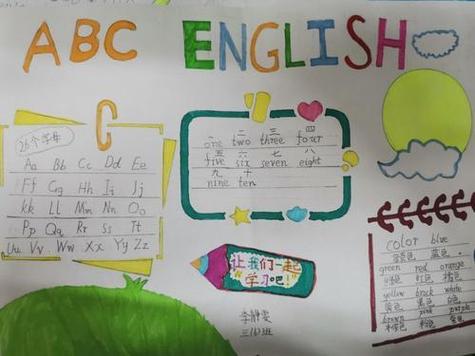 ABC ENGLISH
C
26个字母
Aa Bb Cc Dd Ee
Ff Gg Hh Ii Jj
kk Ll Mm Nn Oo
Pp Qq Rr Ss Tt
Uu Vv Ww Xx Yy Zz
一 二 三 四
one two three four
五 六 七 八
five six seven eight
九 十
nine ten
让我们一起
学习吧!
color blue
蓝色
green red orange
绿色 红色 橙色
yellow black white
黄色 黑色 白色
brown pink purple
棕色 粉色 紫色